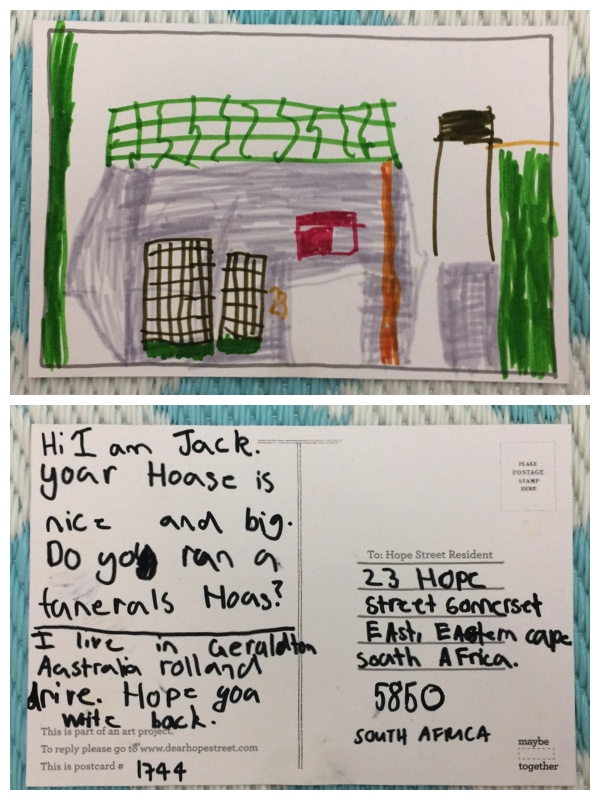 23
Hi I am Jack.
yoar Hoase is
nice and big.
Do you ran a
fanerals Hoas?
I live in Geraldton
Aastralia rolland
drive. Hope yoa
write back.
This is part of an art project.
To reply please go to www.dearhopestreet.com
This is postcard # 1744
PLACE
POSTAGE
STAMP
HERE
To: Hope Street Resident
23 Hope
Street Somerset
East, Eastern cape
South Africa.
5850
SOUTH AFRICA
maybe
together